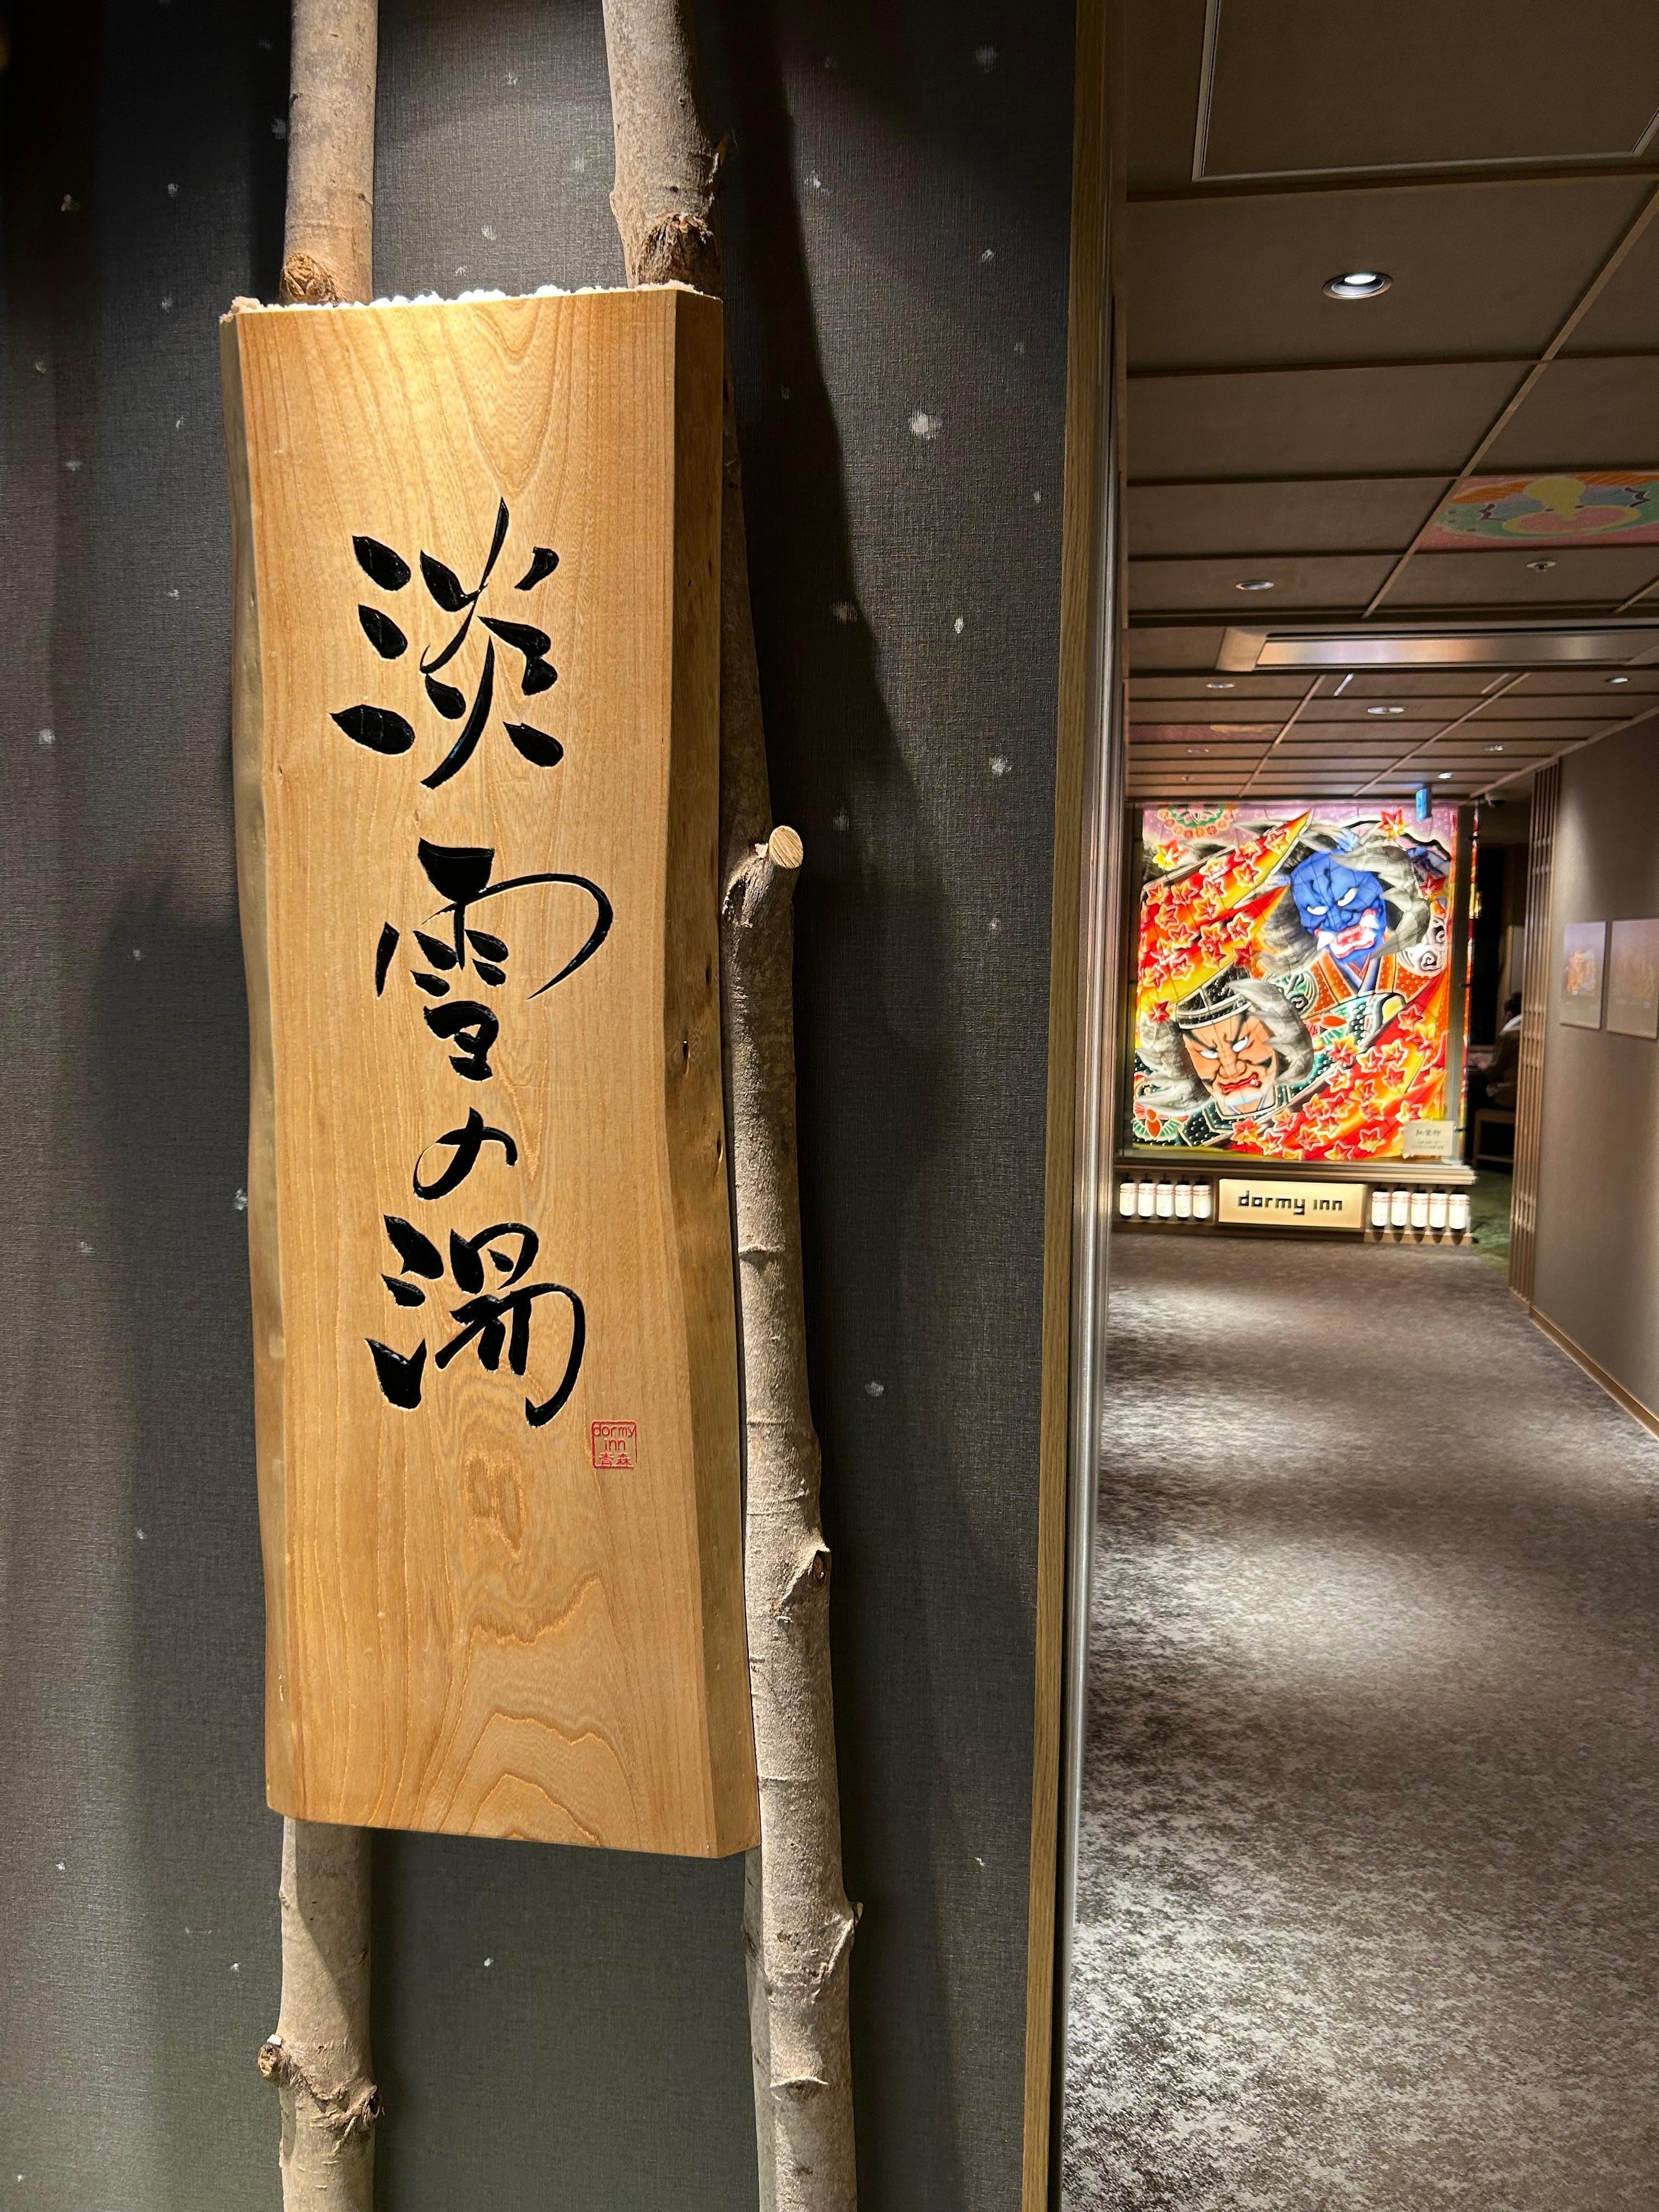 淡雪の湯
dormy
inn
青森
dormy inn